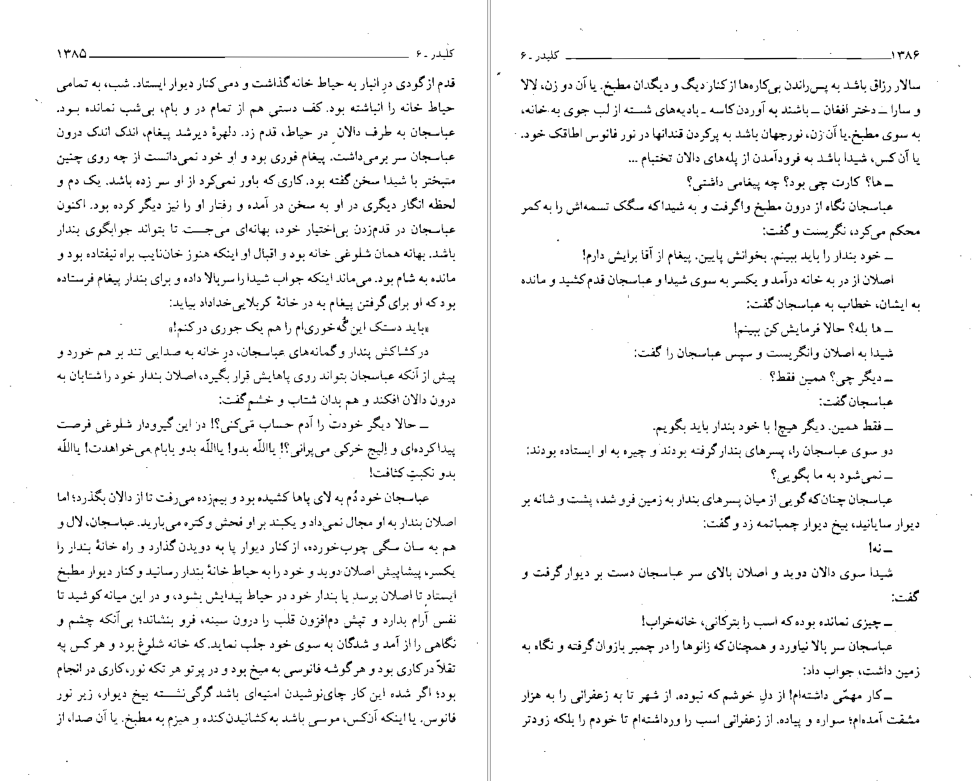 کلیدر ـ ۶ ۱۳۸۵
قدم از گودی درِ انبار به حیاط خانه گذاشت و دمی کنار دیوار ایستاد. شب، به تمامی
حیاط خانه را انباشته بود. کف دستی هم از تمام در و بام، بی‌شب نمانده بود.
عباسجان به طرف دالان در حیاط، قدم زد. دلهرهٔ دیرشد پیغام، اندک اندک درون
عباسجان سر برمی‌داشت. پیغام فوری بود و او خود نمی‌دانست از چه روی چنین
متبختر با شیدا سخن گفته بود. کاری که باور نمی‌کرد از او سر زده باشد. یک دم و
لحظه انگار دیگری در او به سخن در آمده و رفتار او را نیز دیگر کرده بود. اکنون
عباسجان در قدم‌زدن بی‌اختیار خود، بهانه‌ای می‌جست تا بتواند جوابگوی بندار
باشد. بهانه همان شلوغی خانه بود و اقبال او اینکه هنوز خان‌نایب براه نیفتاده بود و
مانده به شام بود. می‌ماند اینکه جواب شیدا را سربالا داده و برای بندار پیغام فرستاده
بود که او برای گرفتن پیغام به در خانهٔ کربلایی‌خداداد بیاید:
«باید دستک این گُه‌خوری‌ام را هم یک جوری در کنم!»
در کشاکش پندار و گمانه‌های عباسجان، درِ خانه به صدایی تند بر هم خورد و
پیش از آنکه عباسجان بتواند روی پاهایش قرار بگیرد، اصلان بندار خود را شتابان به
درون دالان افکند و هم بدان شتاب و خشم گفت:
ــ حالا دیگر خودت را آدم حساب می‌کنی؟! در این گیرودار شلوغی فرصت
پیدا کرده‌ای و اِلیج خرکی می‌پرانی؟! یااللّه بدو! یااللّه بدو بابام می‌خواهدت! یااللّه
بدو نکبتِ کثافت!
عباسجان خود دُم به لای پاها کشیده بود و بیم‌زده می‌رفت تا از دالان بگذرد؛ اما
اصلان بندار به او مجال نمی‌داد و یکبند بر او فحش و کتره می‌بارید. عباسجان، لال و
هم به سان سگی چوب‌خورده، از کنار دیوار پا به دویدن گذارد و راه خانهٔ بندار را
یکسر، پیشاپیش اصلان دوید و خود را به حیاط خانهٔ بندار رسانید و کنار دیوار مطبخ
ایستاد تا اصلان برسد یا بندار خود در حیاط پیدایش بشود، و در این میانه کوشید تا
نفس آرام بدارد و تپش دم‌افزون قلب را درون سینه، فرو بنشاند؛ بی‌آنکه چشم و
نگاهی را از آمد و شدگان به سوی خود جلب نماید. که خانه شلوغ بود و هر کس به
تقلاّ در کاری بود و هر گوشه فانوسی به میخ بود و در پرتو هر تکه نور، کاری در انجام
بود؛ اگر شده این کار چای‌نوشیدن امنیه‌ای باشد گرگی‌نشسته بیخ دیوار، زیر نور
فانوس. یا اینکه آن‌کس، موسی باشد به کشانیدن کنده و هیزم به مطبخ. یا آن صدا، از
۱۳۸۶ کلیدر ـ ۶
سالار رزاق باشد به پس‌راندن بی‌کاره‌ها از کنار دیگ و دیگدان مطبخ. یا آن دو زن، لالا
و سارا ــ دختر افغان ــ باشند به آوردن کاسه ـ بادیه‌های شسته از لب جوی به خانه،
به سوی مطبخ. یا آن زن، نورجهان باشد به پرکردن قندانها در نور فانوس اطاقک خود.
یا آن کس، شیدا باشد به فرودآمدن از پله‌های دالان تختبام ...
ــ ها؟ کارت چی بود؟ چه پیغامی داشتی؟
عباسجان نگاه از درون مطبخ واگرفت و به شیدا که سگک تسمه‌اش را به کمر
محکم می‌کرد، نگریست و گفت:
ــ خود بندار را باید ببینم. بخوانش پایین. پیغام از آقا برایش دارم!
اصلان از در به خانه درآمد و یکسر به سوی شیدا و عباسجان قدم کشید و مانده
به ایشان، خطاب به عباسجان گفت:
ــ ها بله؟ حالا فرمایش‌کن ببینم!
شیدا به اصلان وانگریست و سپس عباسجان را گفت:
ــ دیگر چی؟ همین فقط؟
عباسجان گفت:
ــ فقط همین. دیگر هیچ! با خود بندار باید بگویم.
دو سوی عباسجان را، پسرهای بندار گرفته بودند و چیره به او ایستاده بودند:
ــ نمی‌شود به ما بگویی؟
عباسجان چنان‌که گویی از میان پسرهای بندار به زمین فرو شد، پشت و شانه بر
دیوار سایانید، بیخ دیوار چمباتمه زد و گفت:
ــ نه!
شیدا سوی دالان دوید و اصلان بالای سر عباسجان دست بر دیوار گرفت و
گفت:
ــ چیزی نمانده بوده که اسب را بترکانی، خانه‌خراب!
عباسجان سر بالا نیاورد و همچنان که زانوها را در چمبر بازوان گرفته و نگاه به
زمین داشت، جواب داد:
ــ کار مهمّی داشته‌ام! از دلِ خوشم که نبوده. از شهر تا به زعفرانی را به هزار
مشقت آمده‌ام؛ سواره و پیاده. از زعفرانی اسب را ورداشته‌ام تا خودم را بلکه زودتر